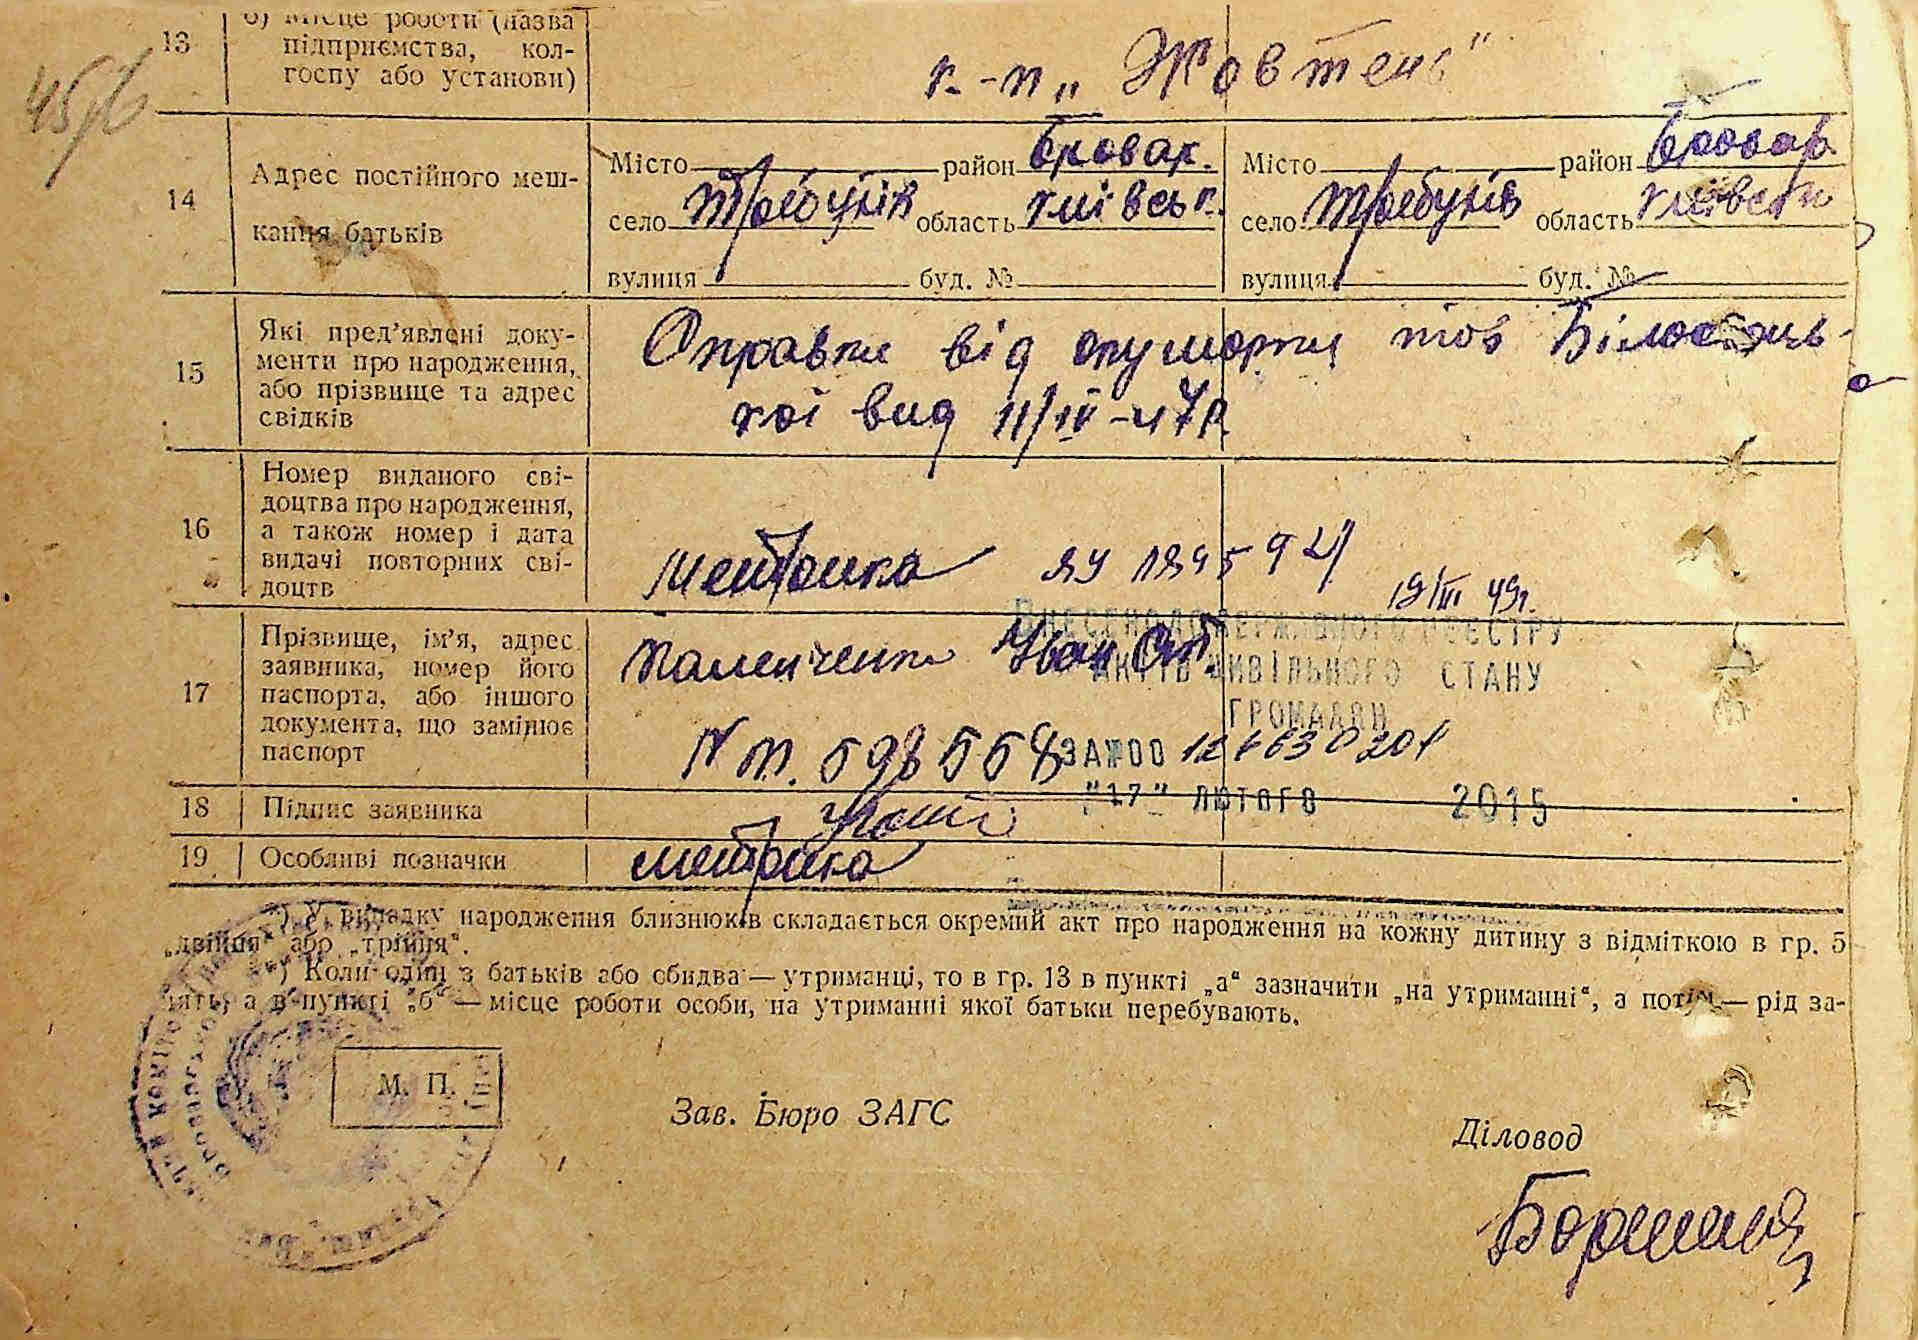 13 б) Місце роботи (назва
підприємства, кол-
госпу або установи)
к-п „Жовтень"
14 Адрес постійного меш-
кання батьків
Місто район Бровар.
село Требухів область Київськ.
вулиця буд. №
Місто район Бровар.
село Требухів область Київськ
вулиця буд. №
15 Які пред’явлені доку-
менти про народження,
або прізвище та адрес
свідків
Справка від акушерки тов
кої вид 11/IV-47р.
16 Номер виданого сві-
доцтва про народження,
а також номер і дата
видачі повторних сві-
доцтв
Метрика ЯУ
19/III 49г.
17 Прізвище, ім’я, адрес
заявника, номер його
паспорта, або іншого
документа, що замінює
паспорт
Іван
N п. 598558
ВНЕСЕНО ДО ДЕРЖАВНОГО РЕЄСТРУ
АКТІВ ЦИВІЛЬНОГО СТАНУ
ГРОМАДЯН
ЗА №00
"17" ЛЮТОГО 2015
18 Підпис заявника
19 Особливі позначки
метрика
*) У випадку народження близнюків складається окремий акт про народження на кожну дитину з відміткою в гр. 5
„двійня“ або „трійня“.
*) Коли один з батьків або обидва — утриманці, то в гр. 13 в пункті „а“ зазначити „на утриманні“, а потім — рід за-
нять, а в пункті „б“ — місце роботи особи, на утриманні якої батьки перебувають.
М. П.
Зав. Бюро ЗАГС
Діловод